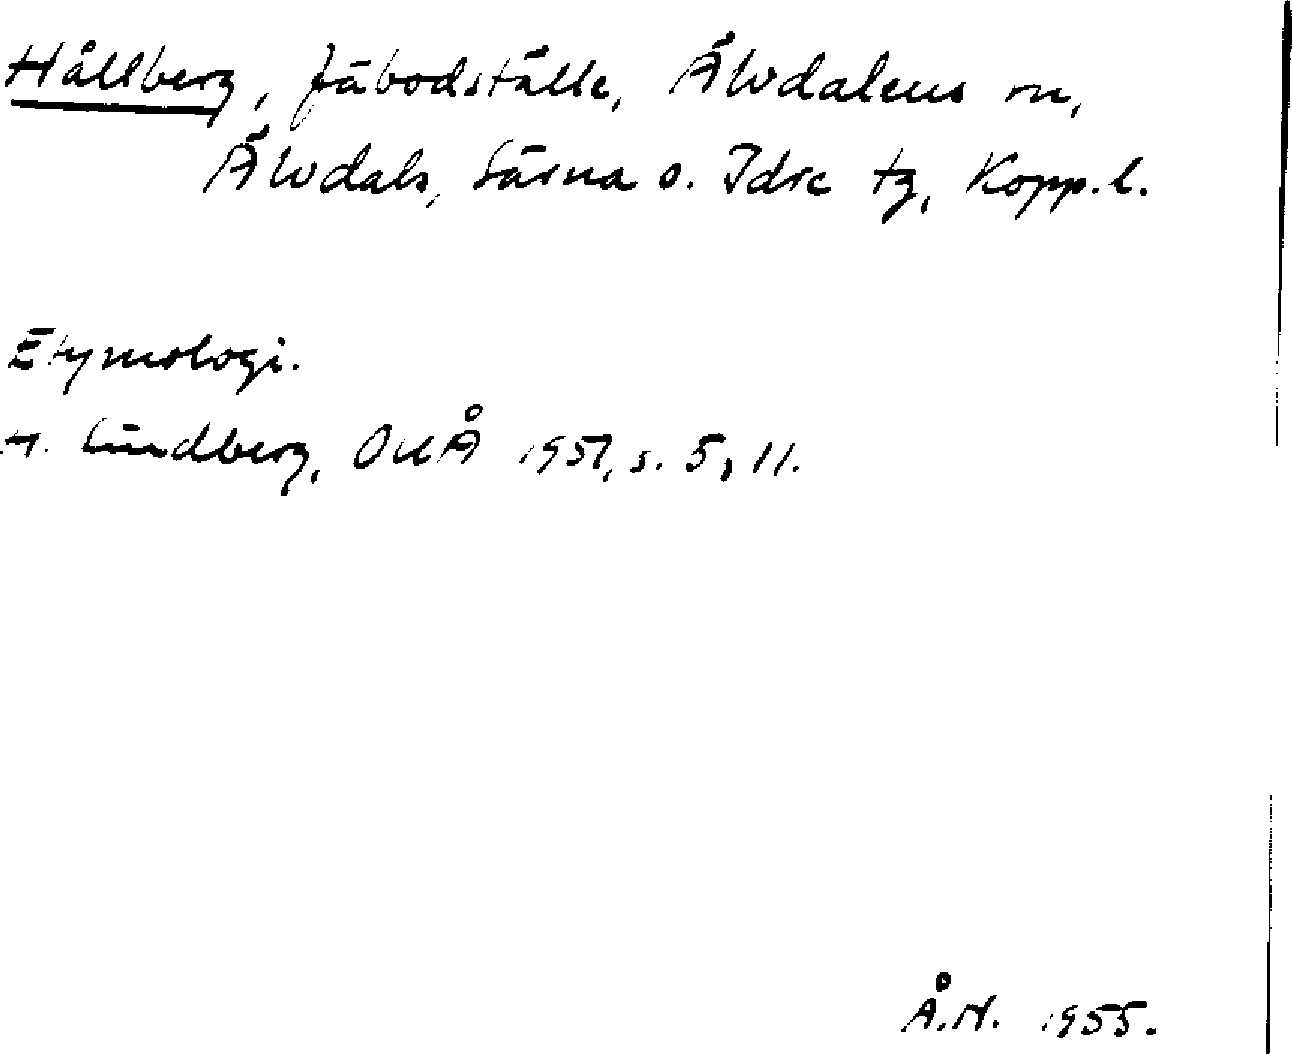 Hållberg, fäbodställe, Älvdalens sn,
Älvdals, Särna o. Idre tg, Kopp. l.
Etymologi.
H. Lindberg, OUÅ 1951, s. 5, 11.
Å.H. 1955.